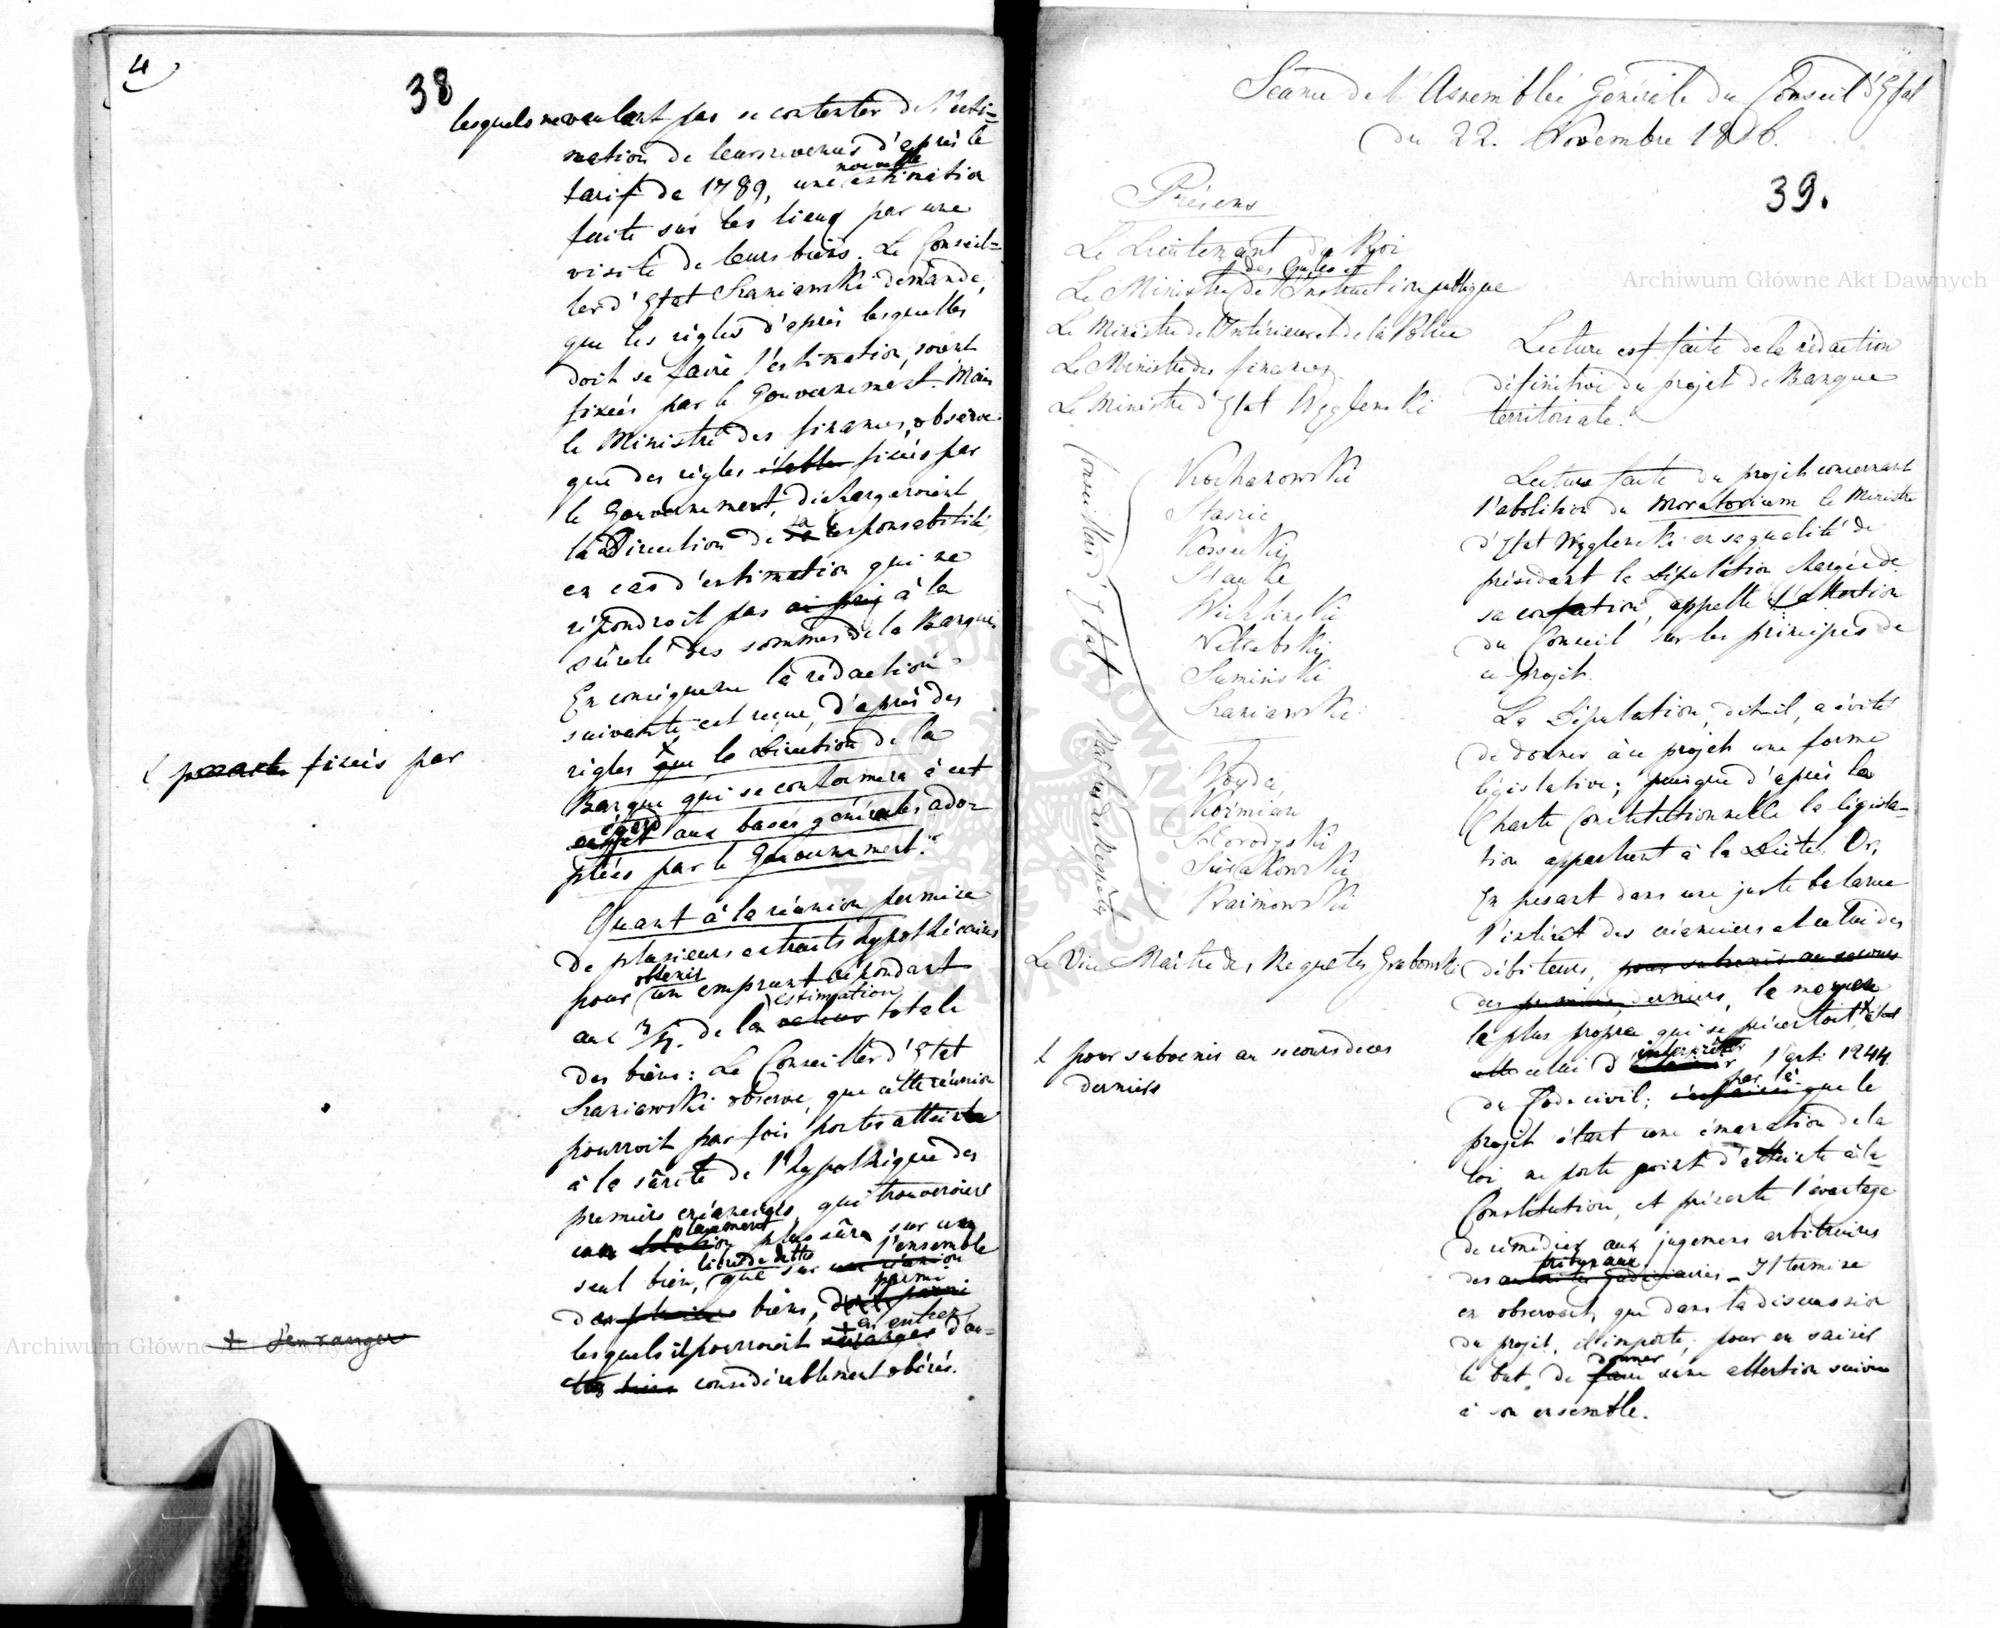 4)
38
lesquels ne voulant pas se contenter de l'esti=
mation de leurs revenus d'après le
tarif de 1789, une nouvelle estimation
faite sur les lieux par une
visite de leurs biens. Le Conseil=
ler d'Etat Szaniawski demande,
que les règles d'après lesquelles
doit se faire l'estimation, soient
fixées par le Gouvernement. Mais
le Ministre des finances, observe
que des règles fixées par
le Gouvernement, dechargeroient
la Direction de sa responsabilité,
en cas d'estimation qui ne
répondroit pas à la
sûreté des sommes de la Banque.
En conséquence la rédaction
suivante est reçue, d'après des
règles que la Direction de la
Banque qui se conformera à cet
égard aux bases générales adop=
tées par le Gouvernement."
fixées par
Quant à la réunion permise
de plusieurs extraits hypothécaires
pour obtenir un emprunt répondant
aux de la estimation valeur totale
des biens: Le Conseiller d'Etat
Szaniawski observe, que cette réunion
pourroit par fois porter atteinte
à la sûreté de l'hypothèque des
premiers créanciers, qui trouveroient
un placement plus sûr sur un
seul bien, libre de dettes que sur l'ensemble
des biens, parmi
lesquels il pourroit en entrer d'au=
tres considérablement obérés.
+ d'en ranger
Séance de l'Assemblée Générale du Conseil d'Etat
du 22. Novembre 1816.
39.
Présens
Le Lieutenant du Roi
Le Ministre des Cultes et de l'Instruction publique
Le Ministre de l'Intérieur et de la Police
Le Ministre des finances
Le Ministre d'Etat Węglenski
Conseillers d'Etat
Kochanowski
Staszic
Kossecki
Stanke
Wichlinski
Suminski
Szaniawski
Maitres des Requêtes
Woyda
Kozmian
Horodyski
Sierakowski
Kraimowski
Le Vice Maitre des Requetes Grabowski
Lecture est faite de la rédaction
définitive du projet de Banque
territoriale.
Lecture faite du projet concernant
l'abolition du Moratorium le Ministre
d'Etat Węglenski en sa qualité de
présidant la Députation chargée de
sa confection, appelle l'attention
du Conseil sur les principes de
ce projet.
La Députation, dit-il, a évité
de donner à ce projet une forme
législative; puisque d'après la
Charte Constitutionnelle la législa=
tion appartient à la Diète. Or,
En pesant dans une juste balance
l'intérêt des créanciers et celui des
débiteurs, pour subvenir au secours
des premiers, derniers, le moyen
le plus propre qui se présentoit, étoit
celui d'interpréter l'art. 1244
du Code civil; par là que le
projet étant une émanation de la
loi ne porte point d'atteinte à la
Constitution, et présente l'avantage
de rémédier aux jugemens arbitraires
des tribunaux. Il termine
en observant, que dans la discussion
du projet, il importe, pour en saisir
le but, de donner une attention suivie
à son ensemble.
pour subvenir au secours de ces
derniers
Archiwum Główne Akt Dawnych
Archiwum Główne Akt Dawnych